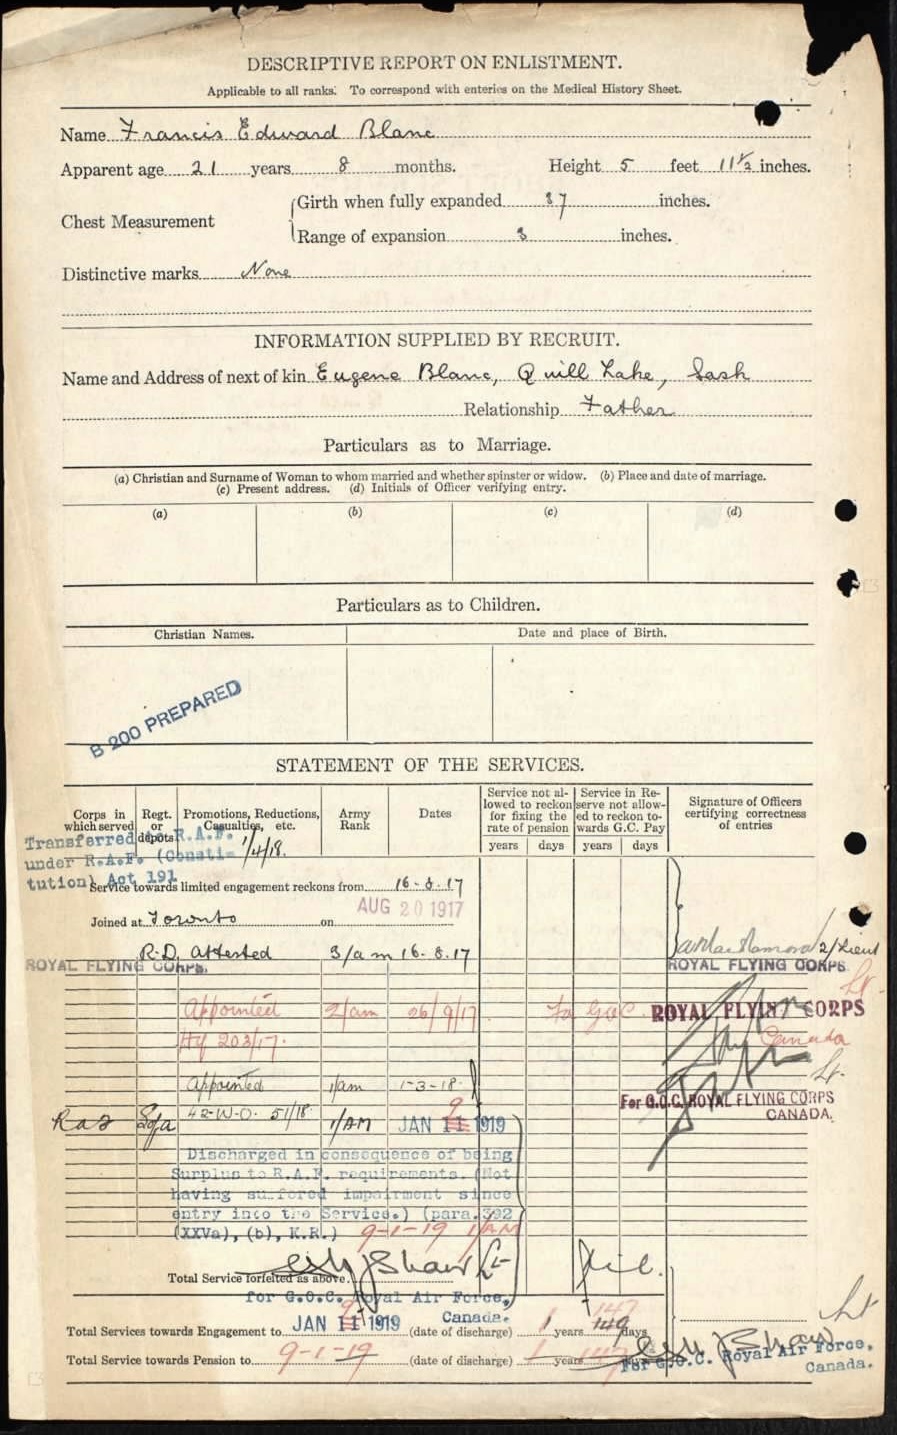 DESCRIPTIVE REPORT ON ENLISTMENT.
Applicable to all ranks. To correspond with enteries on the Medical History Sheet.
Name Francis Edward Blanc
Apparent age 21 years 8 months. Height 5 feet 11½ inches.
Chest Measurement
Girth when fully expanded 37 inches.
Range of expansion 3 inches.
Distinctive marks None
INFORMATION SUPPLIED BY RECRUIT.
Name and Address of next of kin Eugene Blanc, Quill Lake, Sask
Relationship Father
Particulars as to Marriage.
(a) Christian and Surname of Woman to whom married and whether spinster or widow. (b) Place and date of marriage.
(c) Present address. (d) Initials of Officer verifying entry.
(a) (b) (c) (d)
Particulars as to Children.
Christian Names. Date and place of Birth.
B 200 PREPARED
STATEMENT OF THE SERVICES.
Corps in which served
Regt. or depots
Promotions, Reductions, Casualties, etc.
Army Rank
Dates
Service not allowed to reckon for fixing the rate of pension
Service in Reserve not allowed to reckon towards G.C. Pay
Signature of Officers certifying correctness of entries
years days years days
Transferred to R.A.F. 1/4/18.
under R.A.F. (Consti-
tution) Act 191
Service towards limited engagement reckons from 16-8-17
AUG 20 1917
Joined at Toronto on
R.D. Attested 3/am 16.8.17
2/Lieut
ROYAL FLYING CORPS. ROYAL FLYING CORPS
Lt.
Appointed 2/am 26/9/17 Fo GOC ROYAL FLYING CORPS
Hq 203/17. Canada
Appointed 1/am 1-3-18. Lt.
For G.O.C. ROYAL FLYING CORPS
CANADA.
42-W-O. 51/18 1/AM JAN 11 9 1919
Discharged in consequence of being
Surplus to R.A.F. requirements. (Not
having suffered impairment since
entry into the Service.) (para.392
(XXVa), (b), K.R.) 9-1-19 1/AM
Shaw Lt
Total Service forfeited as above. Nil.
for G.O.C. Royal Air Force,
Canada.
Total Services towards Engagement to JAN 11 9 1919 (date of discharge) 1 years 149 147 days
Lt
Shaw
Total Service towards Pension to 9-1-19 (date of discharge) 1 years 147 days
For G.O.C. Royal Air Force,
Canada.